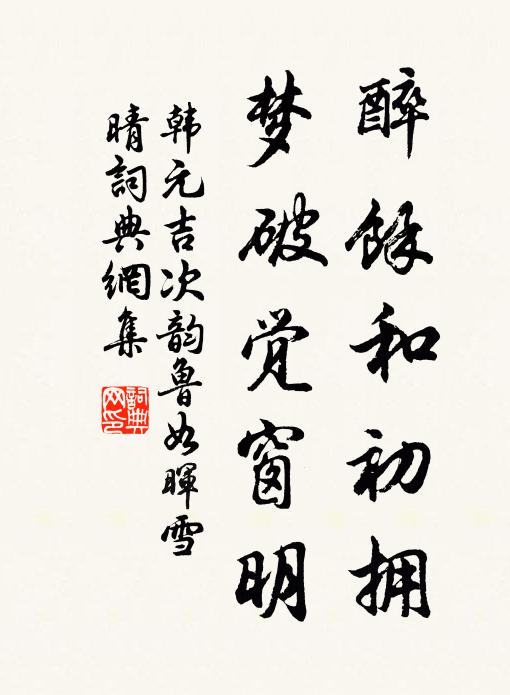 醉餘和初拥
梦破觉窗明
韩元吉次韵鲁如晖雪
晴詞典網集
詞典网印